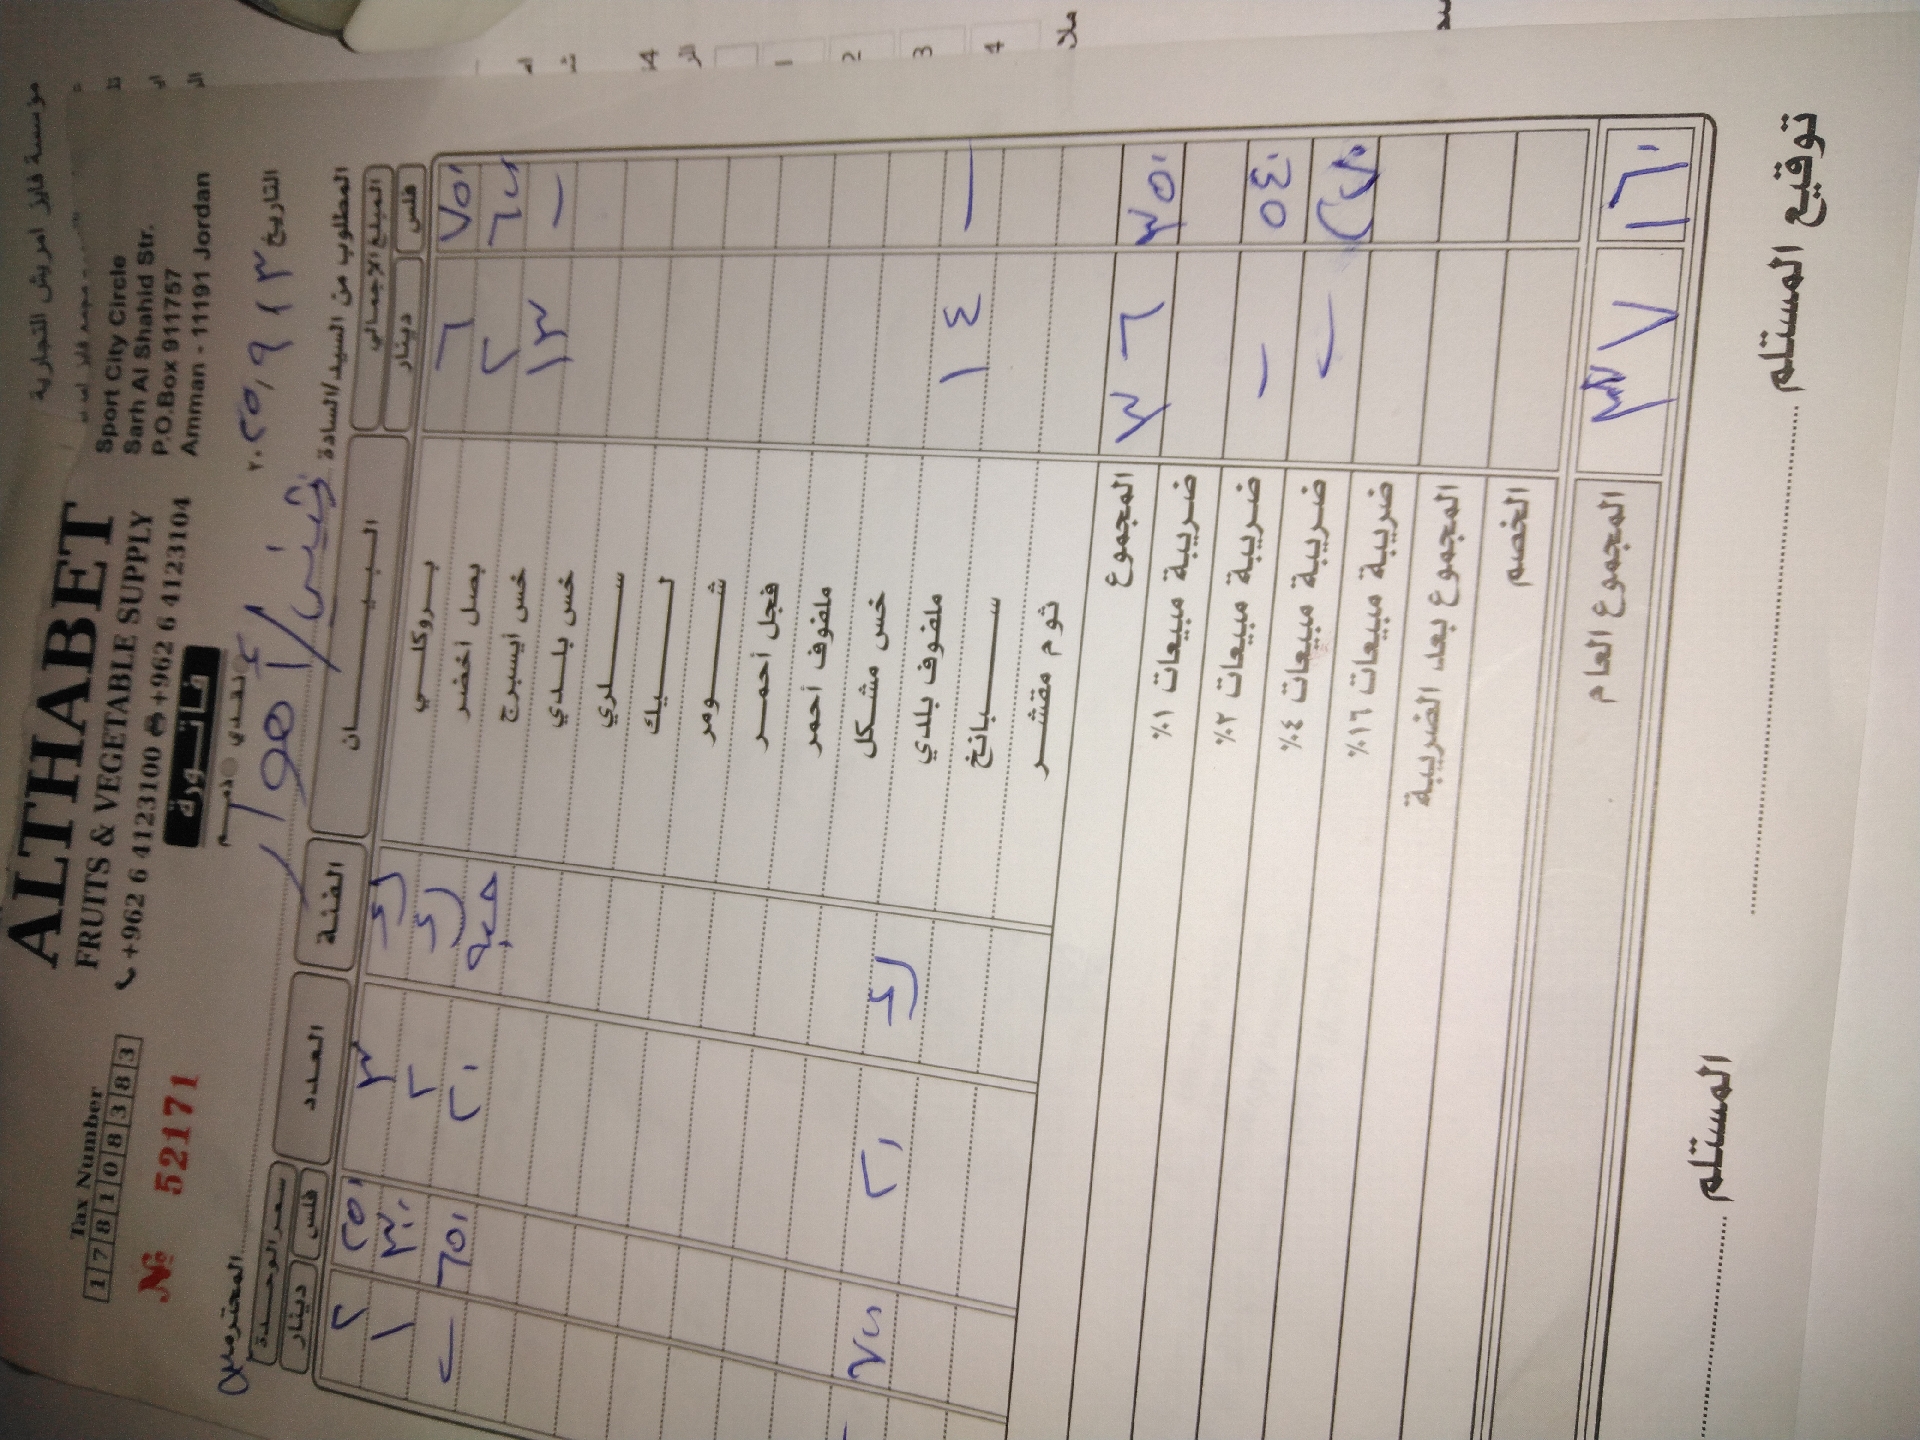 مؤسسة فايز امريش التجارية
ALTHABET
FRUITS & VEGETABLE SUPPLY
+962 6 4123100 +962 6 4123104
Sport City Circle
Sarh Al Shahid Str.
P.O.Box 911757
Amman - 11191 Jordan
Tax Number
178108383
№ 52171
فاتورة
نقدي ذمم
التاريخ ١٣ / ٩ / ٢٠٢٥
المطلوب من السيد/السادة المحترمين
المبلغ الإجمالي البيــــان الفئة العدد سعر الوحدة
فلس دينار فلس دينار
٧٥٠ ٦ بروكلي ك ٣ ٢٥٠ ٢
٦٠٠ ٢ بصل أخضر ك ٢ ٣٠٠ ١
- ١٣ خس أيسبرج حبه ٢٠ ٦٥٠ -
خس بلدي
سلري
ليك
شومر
فجل أحمر
ملفوف أحمر
خس مشكل
ملفوف بلدي
- ١٤ سبانخ ك ٢٠ ٧٠٠
ثوم مقشر
٣٥٠ ٣٦ المجموع
ضريبة مبيعات ١٪
٥٤٠ - ضريبة مبيعات ٢٪
ضريبة مبيعات ٤٪
ضريبة مبيعات ١٦٪
المجموع بعد الضريبة
الخصم
١٦٠ ٣٧ المجموع العام
توقيع المستلم
المستلم